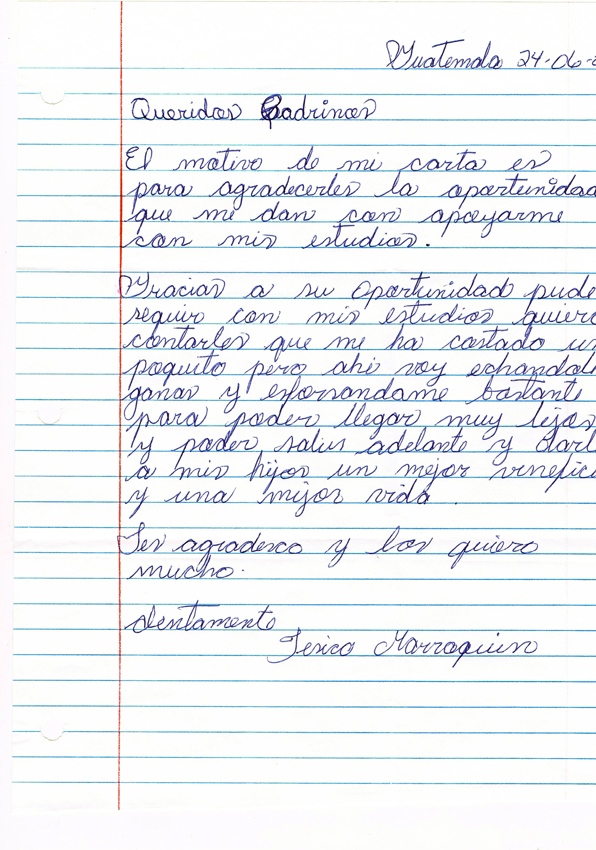 Guatemala 24-06-
Queridos Padrinos
El motivo de mi carta es
para agradecerles la oportunidad
que me dan con apoyarme
con mis estudios.
Gracias a su oportunidad pude
seguir con mis estudios quiero
contarles que me ha costado un
poquito pero ahi voy echandole
ganas y esforsandome bastante
para poder llegar muy lejos
y poder salir adelante y darl
a mis hijos un mejor venefici
y una mijor vida.
Les agradesco y los quiero
mucho.
Atentamente
Marroquin